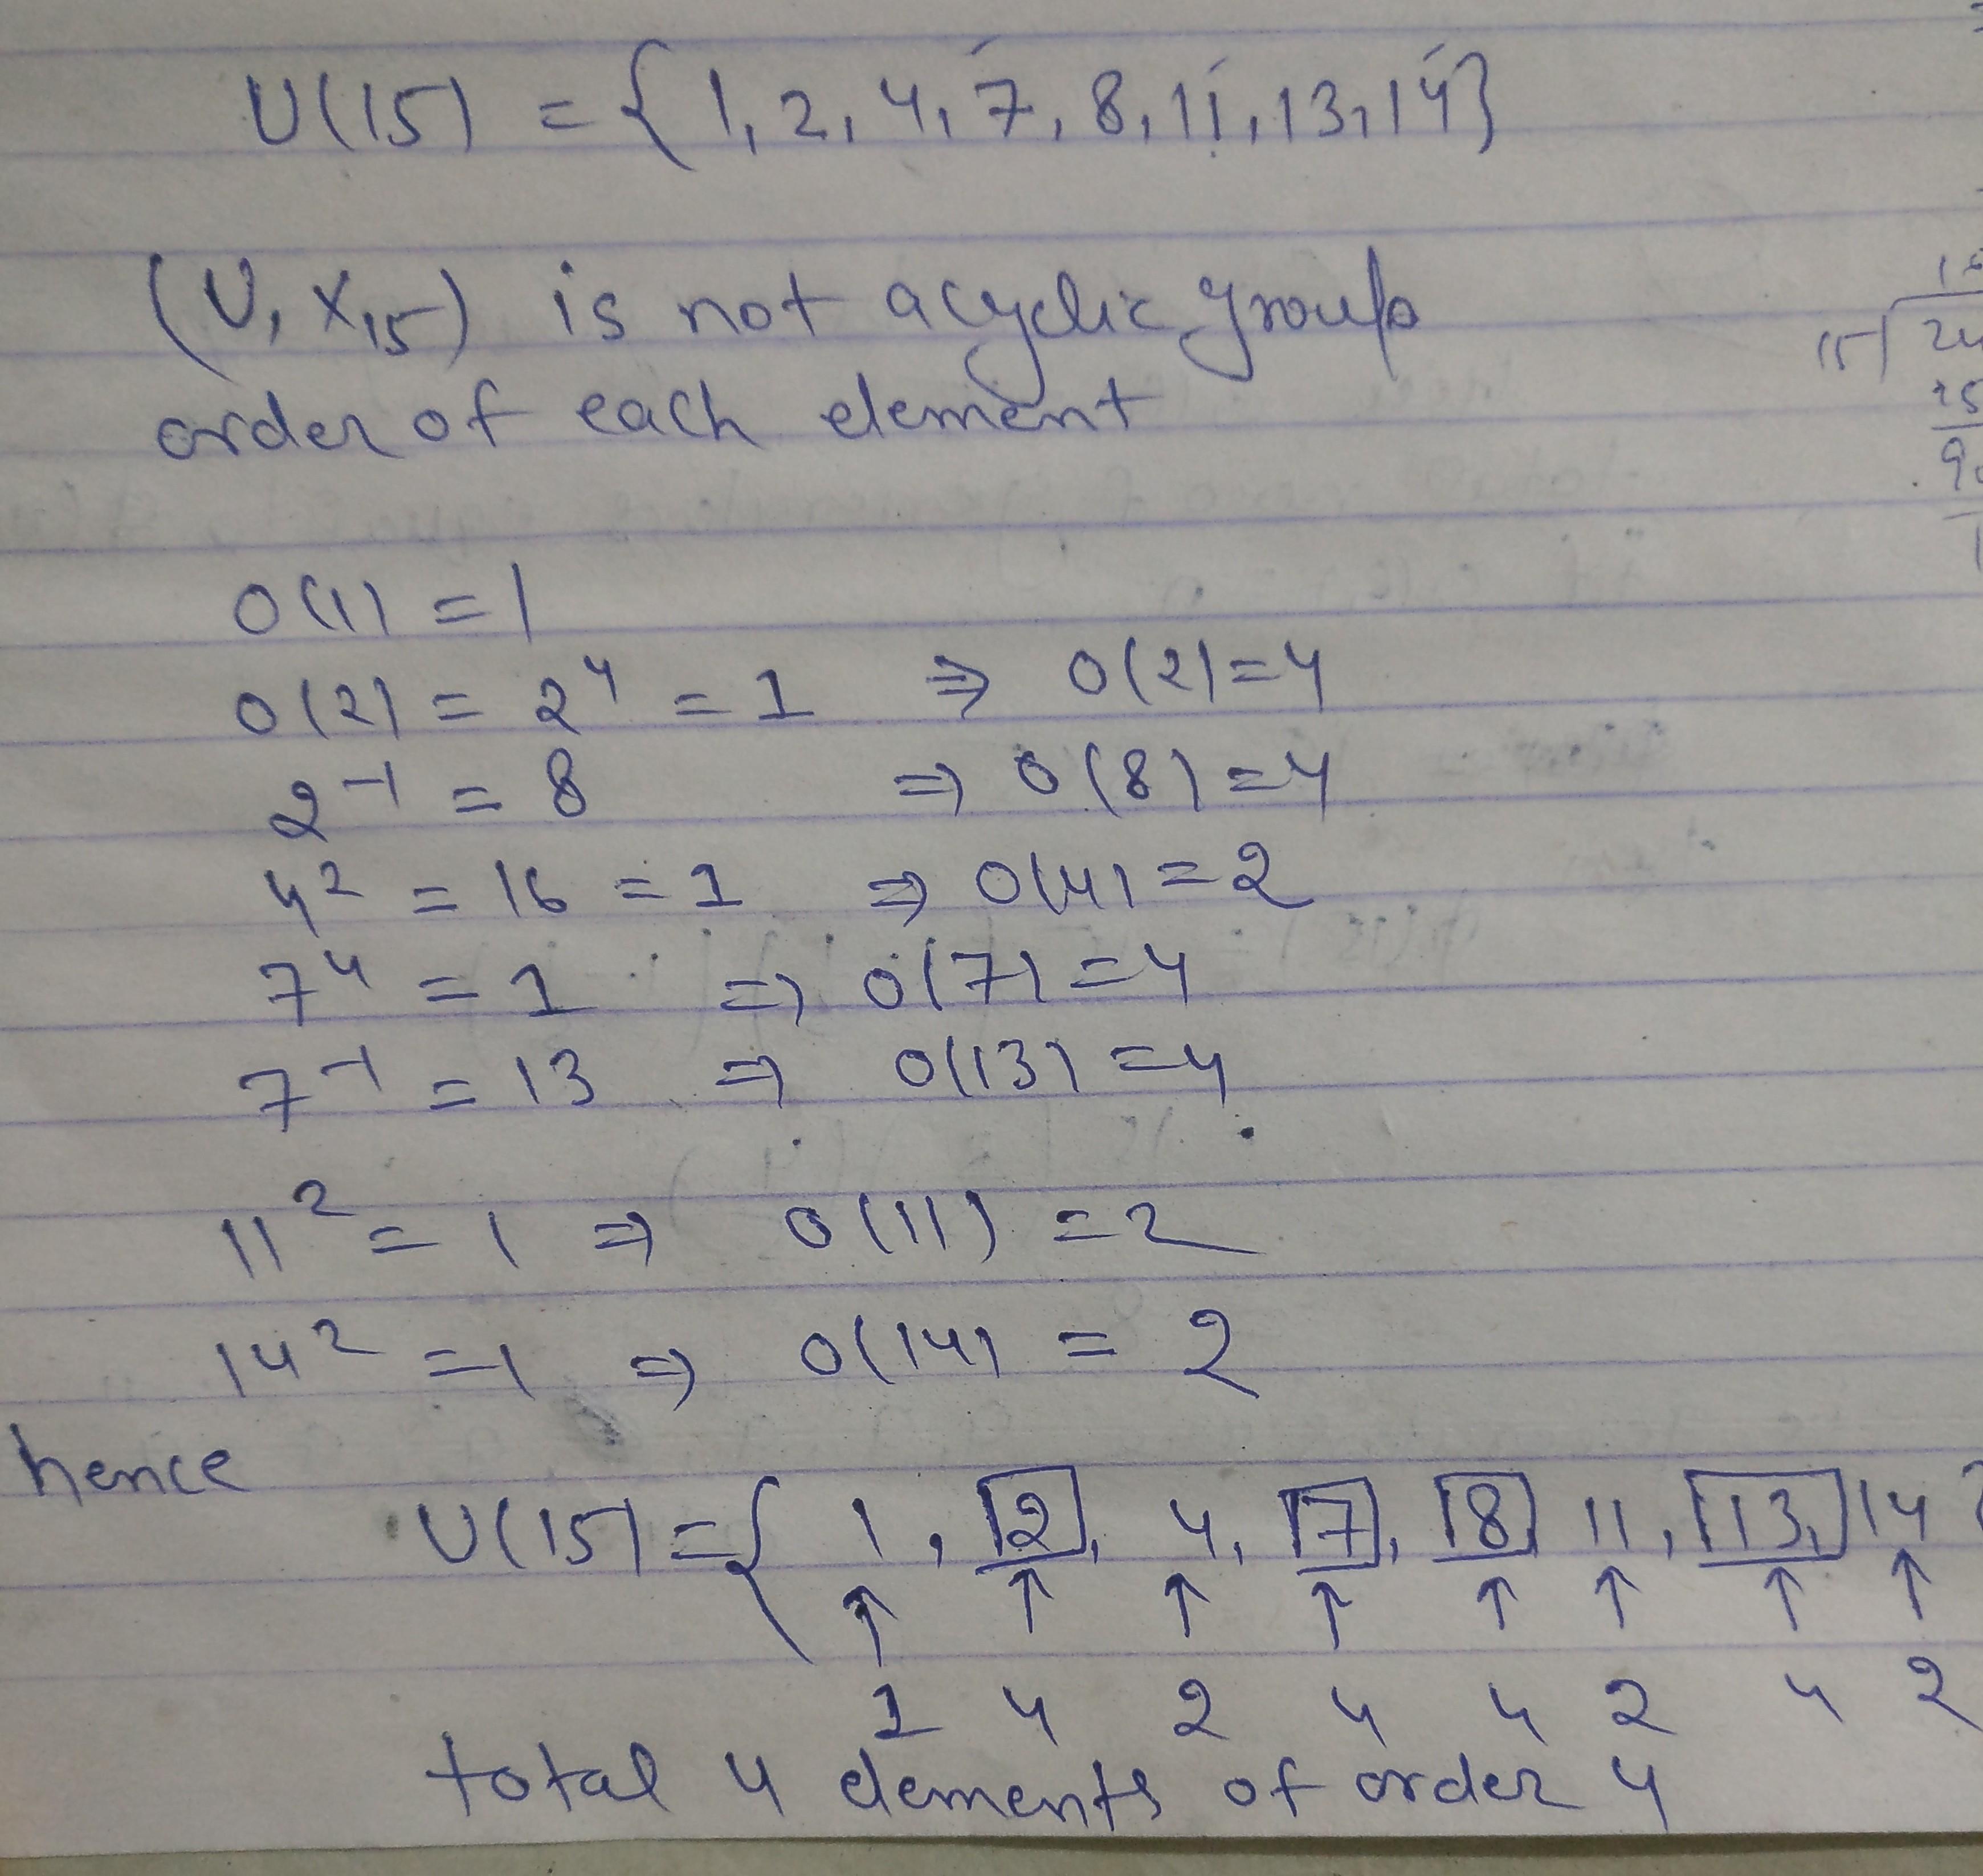 U(15) = {1, 2, 4, 7, 8, 11, 13, 14}
(U, ×₁₅) is not a cyclic group
order of each element
0(1) = 1
0(2) = 2⁴ = 1 ⇒ 0(2) = 4
2⁻¹ = 8 ⇒ 0(8) = 4
4² = 16 = 1 ⇒ 0(4) = 2
7⁴ = 1 ⇒ 0(7) = 4
7⁻¹ = 13 ⇒ 0(13) = 4
11² = 1 ⇒ 0(11) = 2
14² = 1 ⇒ 0(14) = 2
hence
U(15) = { 1, 2, 4, 7, 8, 11, 13, 14
↑ ↑ ↑ ↑ ↑ ↑ ↑ ↑
1 4 2 4 4 2 4 2
total 4 elements of order 4